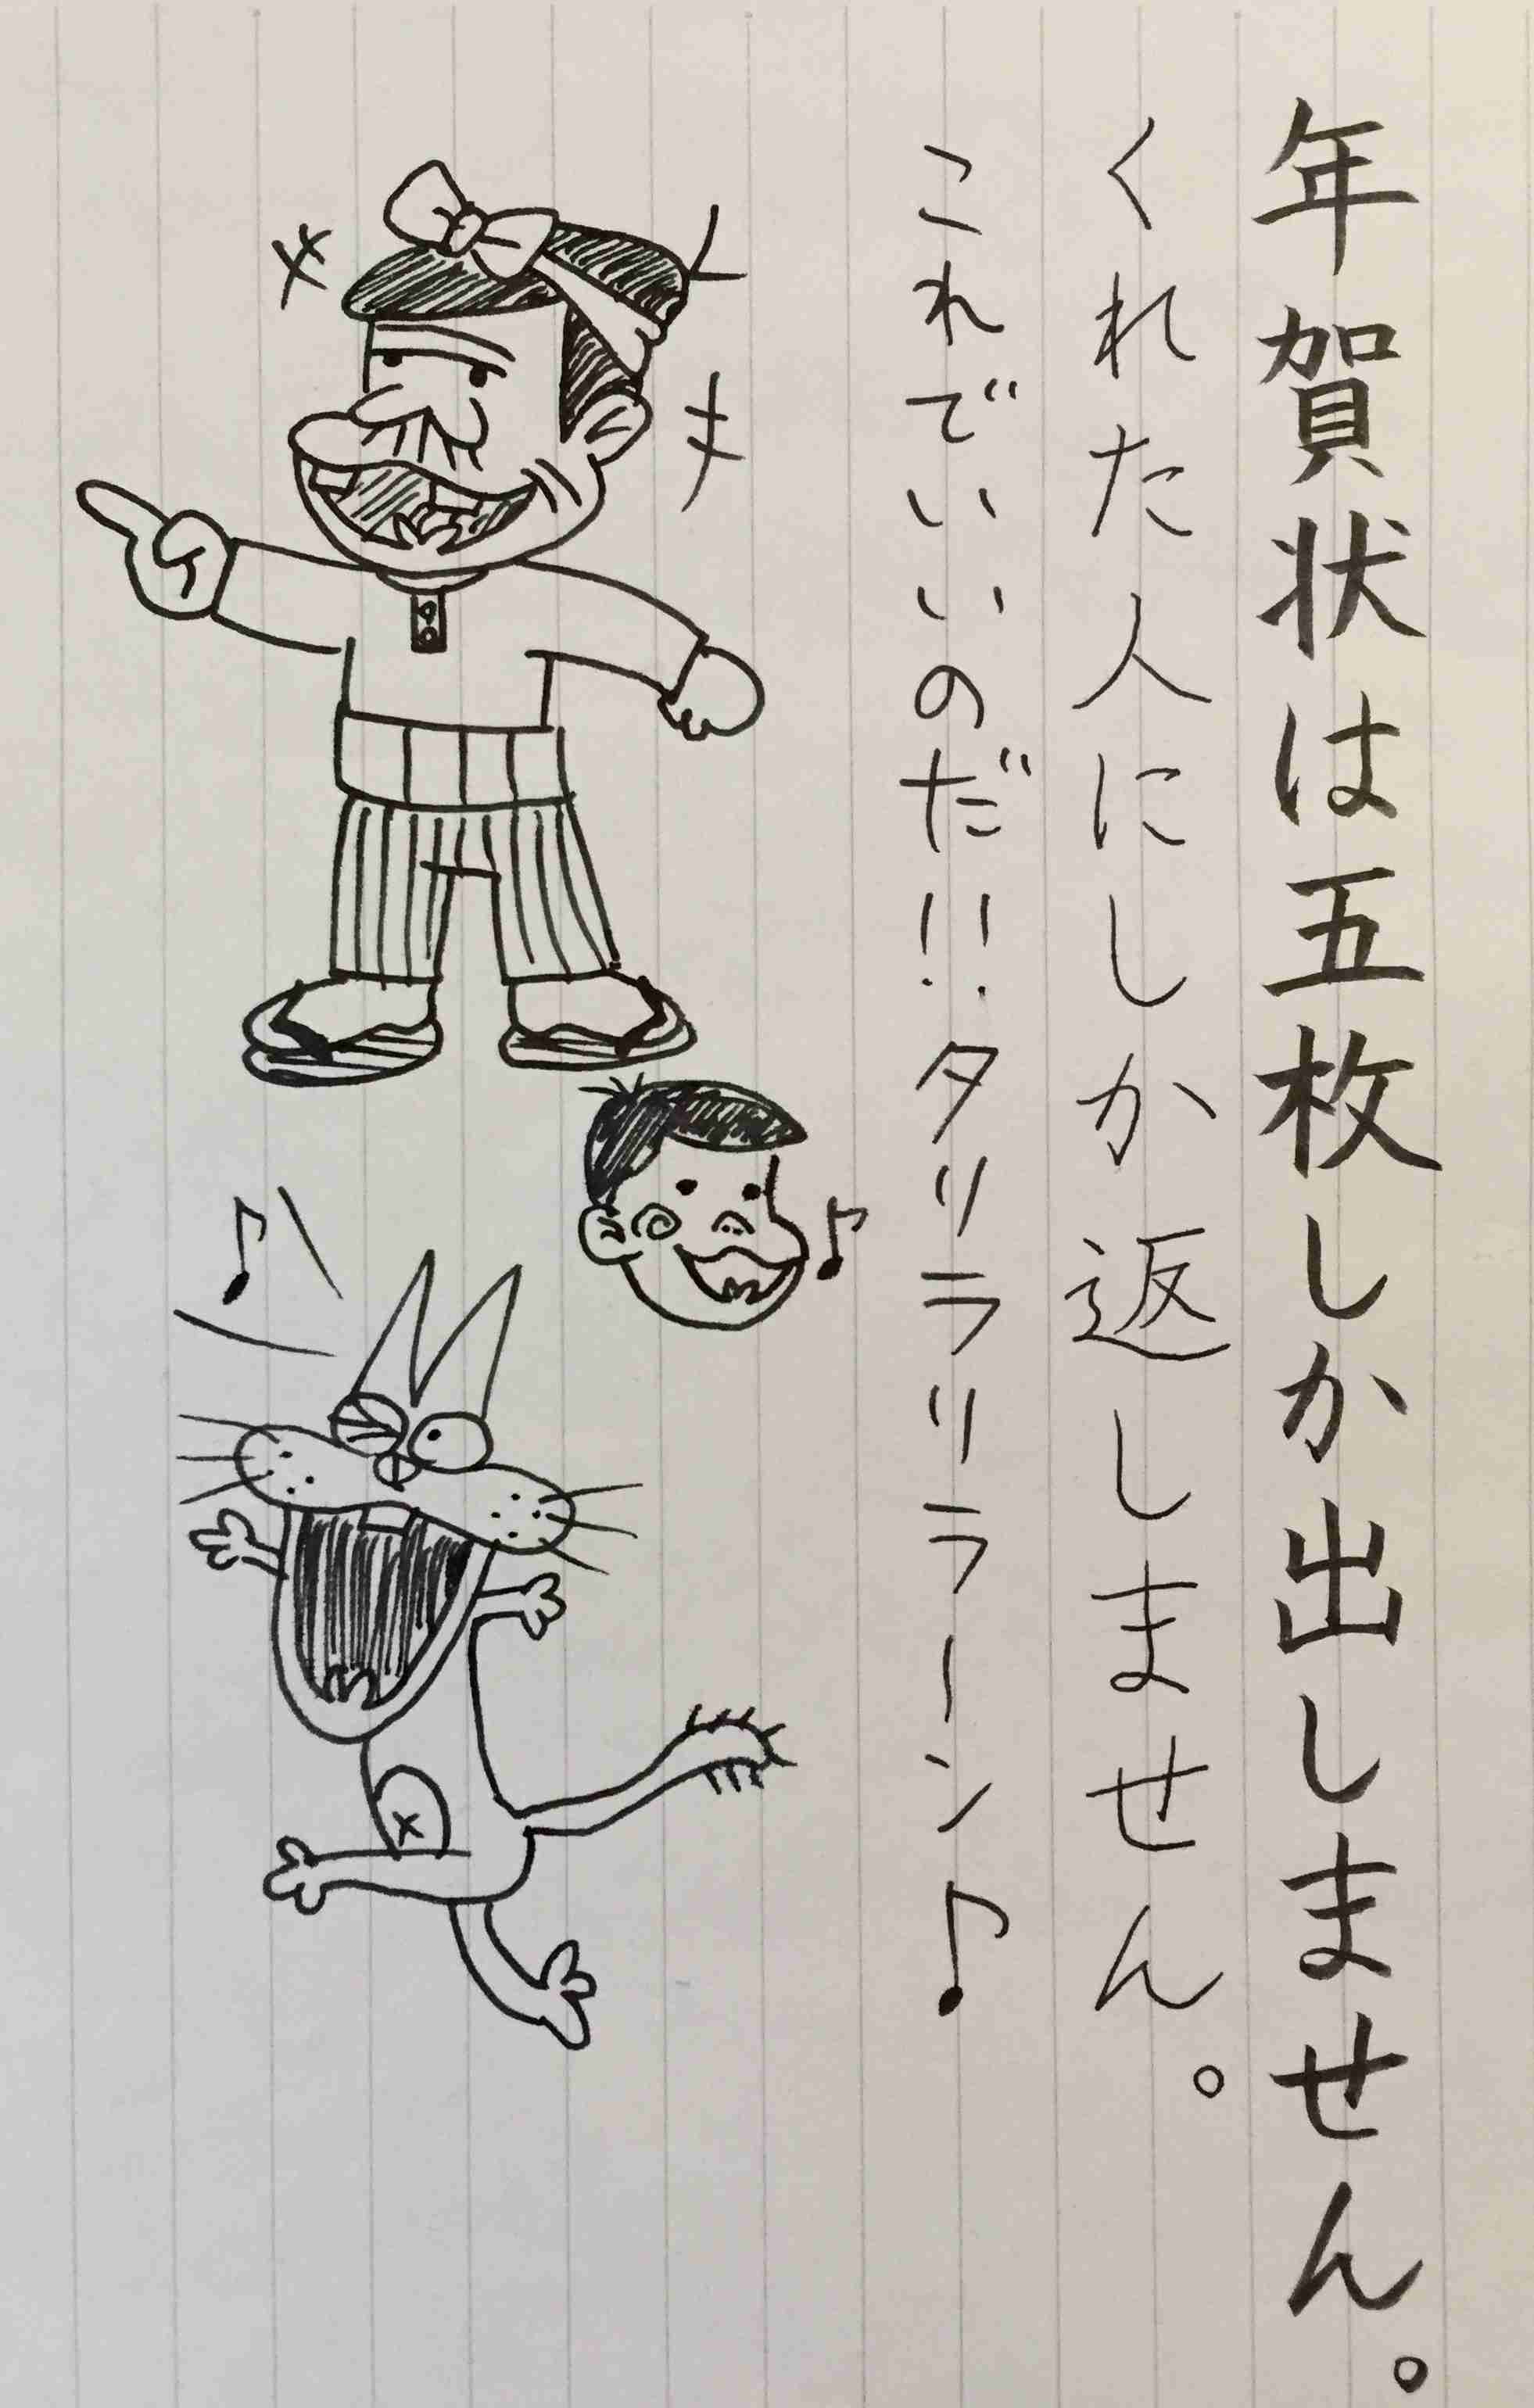 年賀状は五枚しか出しません。
くれた人にしか返しません。
これでいいのだ!!タリラリラーン♪